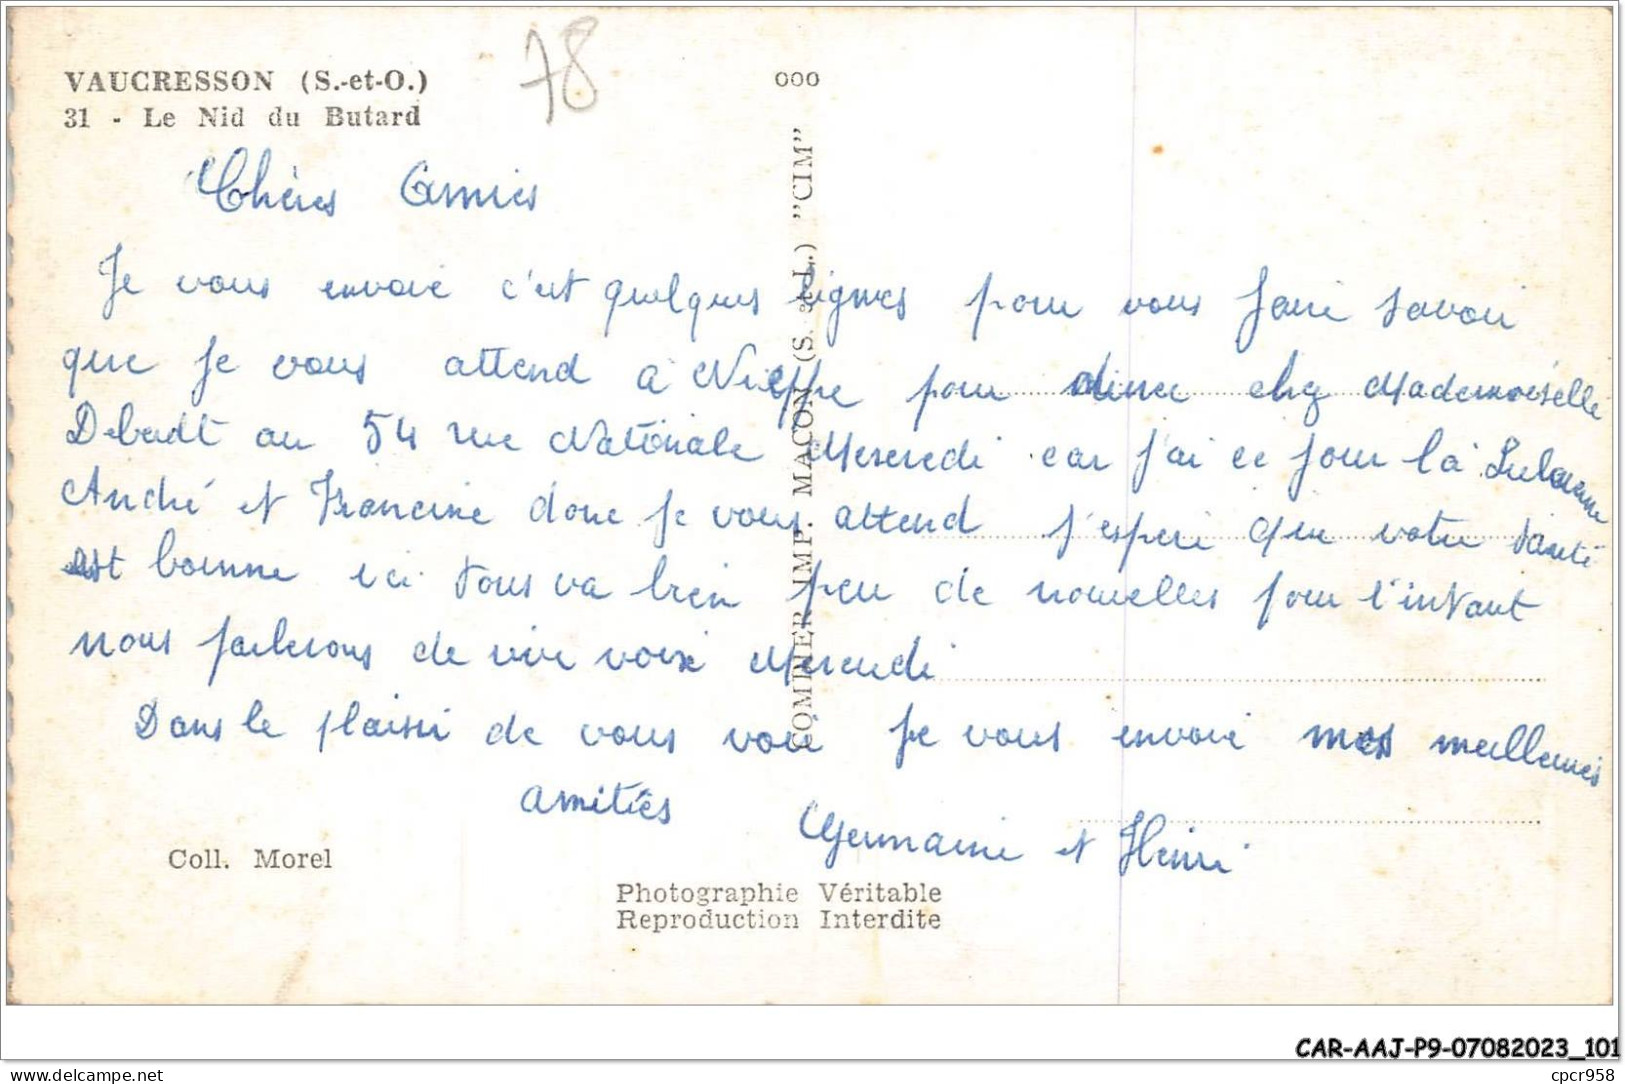 VAUCRESSON (S.-et-O.)
31 - Le Nid du Butard
78
000
COMBIER IMP. MACON (S. et L.) "CIM"
Chères Amies
Je vous envoie c'est quelques lignes pour vous faire savoir
que je vous attend a Nieppe pour diner chez Mademoiselle
Debadt au 54 rue Nationale Mercredi car j'ai ce jour là
André et Francine donc je vous attend j'espere que votre santé
est bonne ici tous va bien peu de nouvelles pour l'instant
nous parlerons de vive voix Mercredi
Dans le plaisir de vous voir je vous envoie mes meilleures
amitiés
Germaine et Henri
Coll. Morel
Photographie Véritable
Reproduction Interdite
CAR-AAJ-P9-07082023_101
delcampe.net
cpcr958